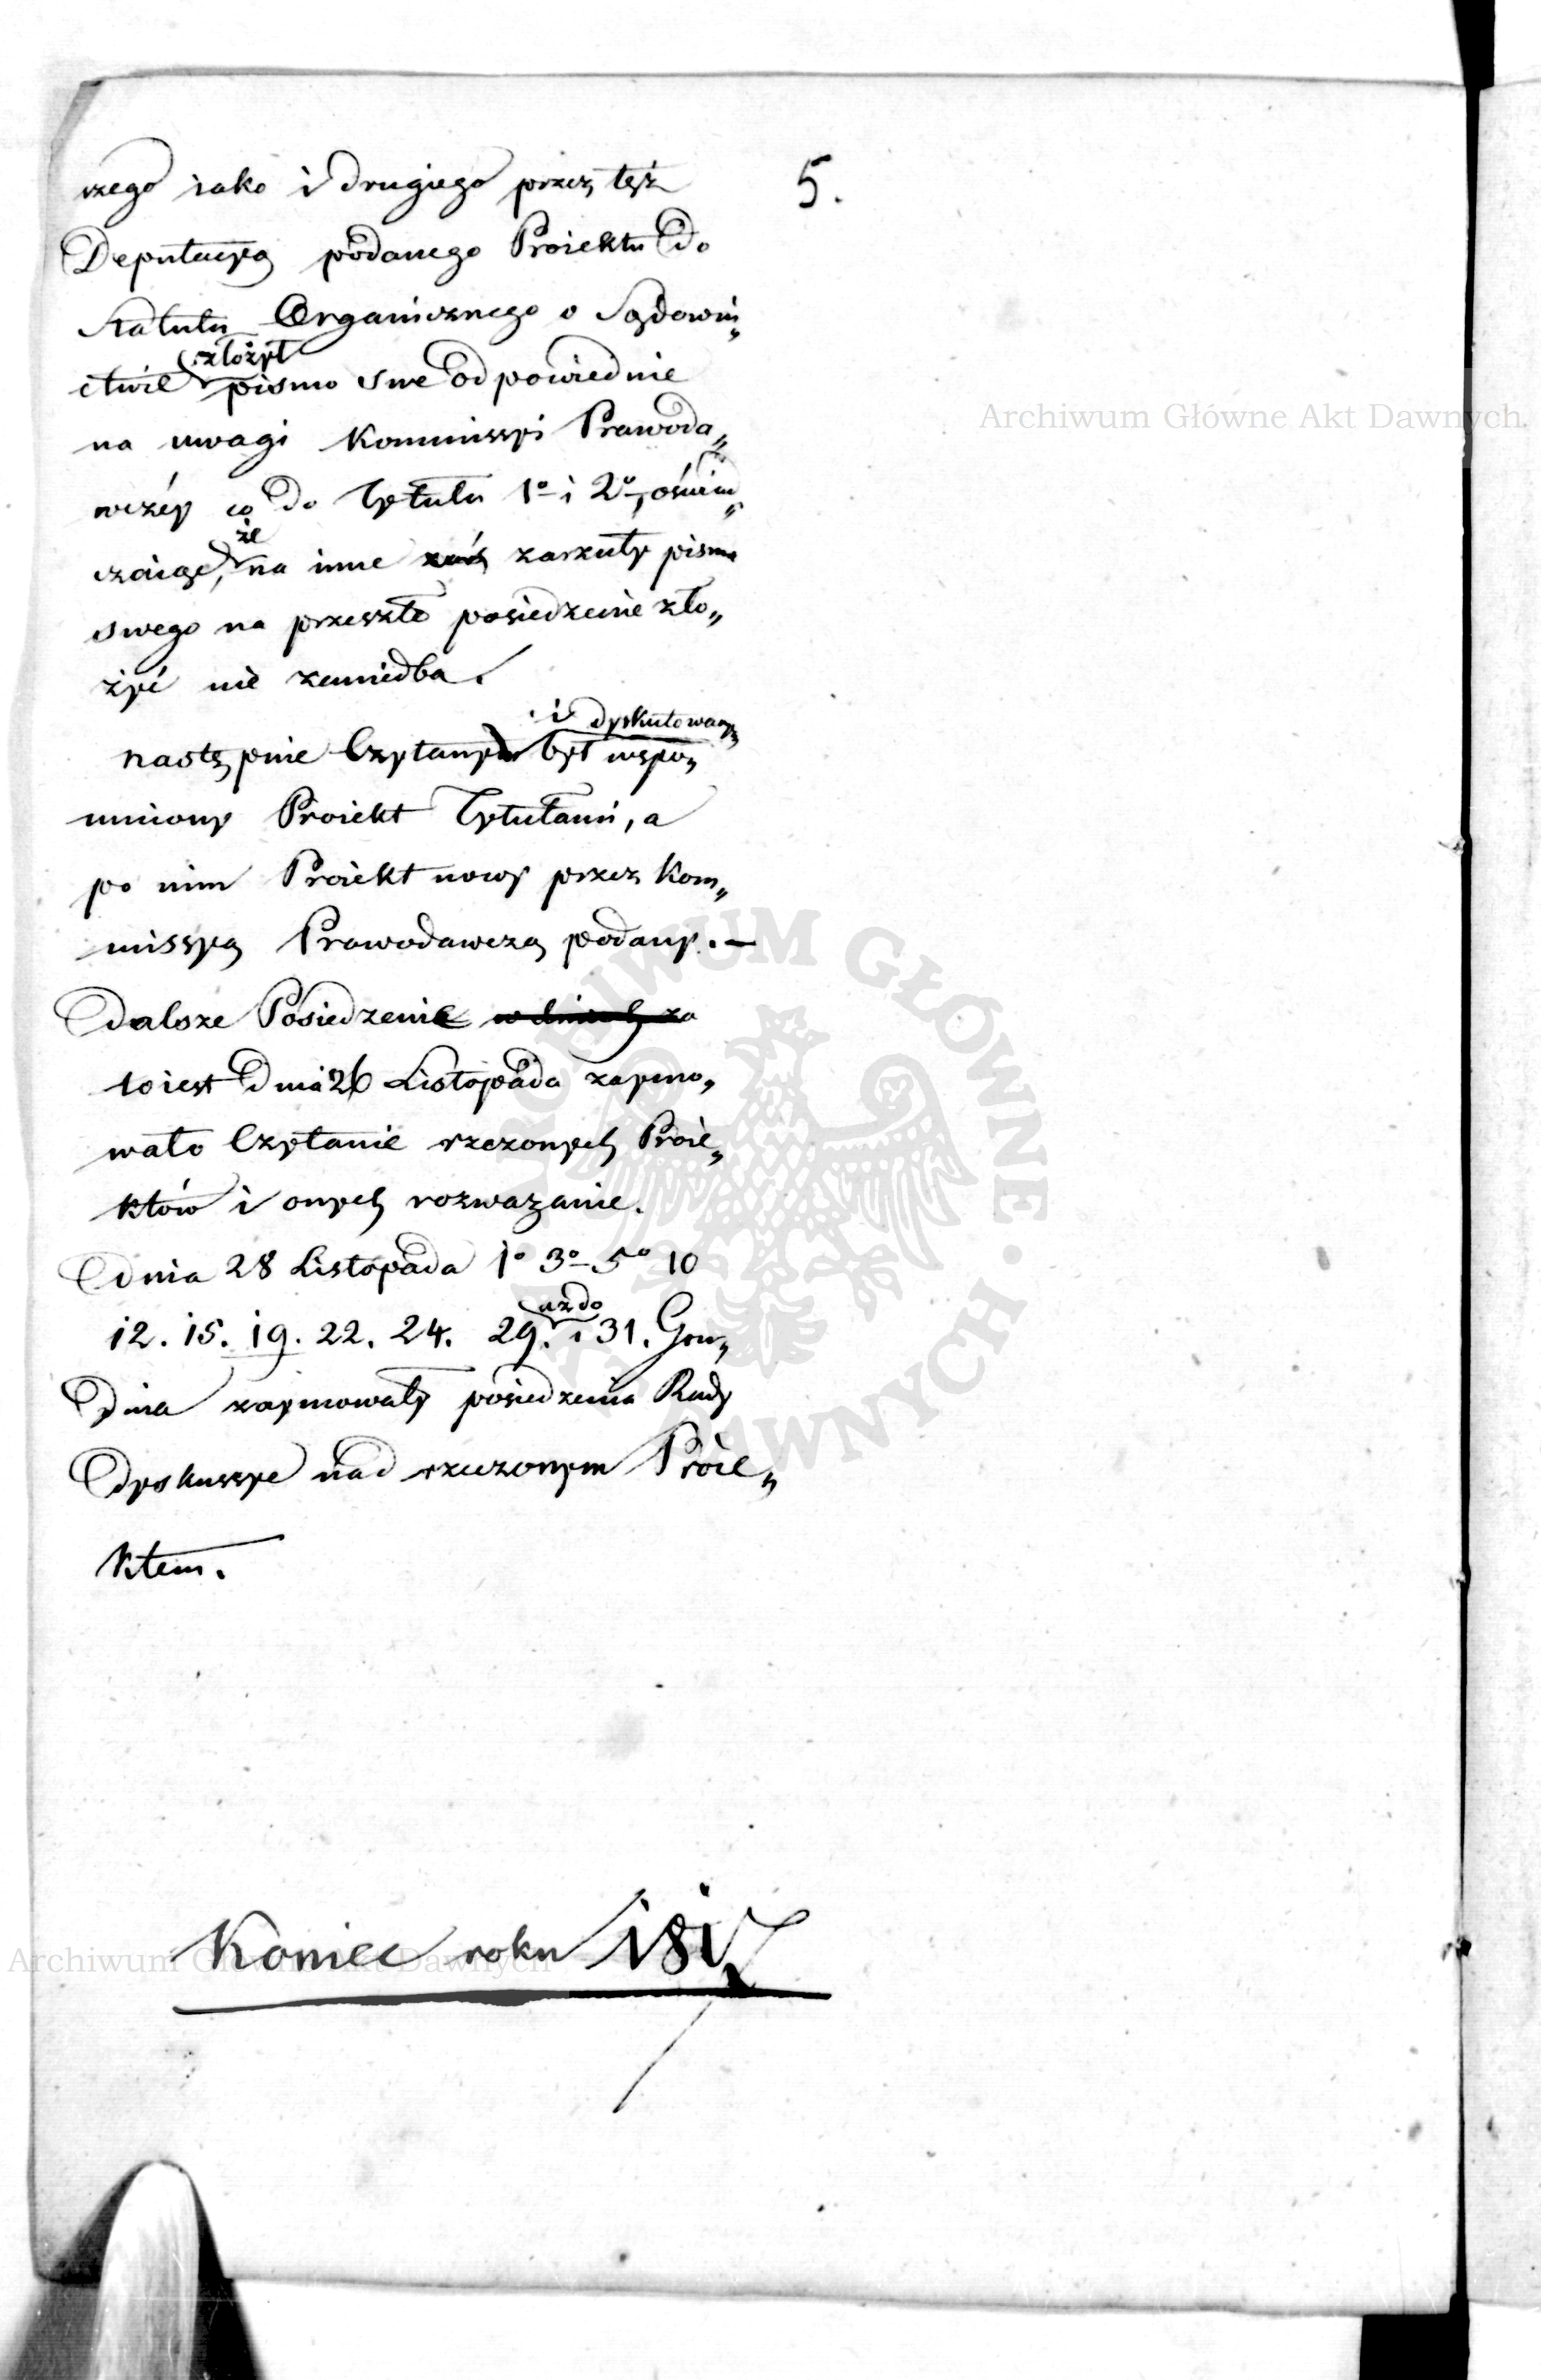 5.
wzego iako i drugiego przez tęż
Deputacyą podanego Proiektu do
Statutu Organicznego o Sądowni„
złożył
ctwie pismo swe odpowiednie
na uwagi Kommissyi Prawoda„
wczéy co do Tytułu 1o i 2o, oświad„
że
czaiąc, na inne zarzuty pisma
swego na przeszłe posiedzenie zło„
żyć nie zaniedba.
i dyskutowany
następnie Czytany był wspo„
mniony Proiekt Tytułami, a
po nim Proiekt nowy przez Kom„
missyą Prawodawczą podany. —
Dalsze Posiedzenie
to iest Dnia 26 Listopada zaymo„
wało Czytanie rzeczonych Proie„
któw i onych rozważanie.
Dnia 28 Listopada 1o 3o 5o 10
aż do
12. 15. 19. 22. 24. 29. i 31. Gru„
dnia zaymowały posiedzenia Rady
Dyskussye nad rzeczonym Proie„
ktem.
Koniec roku 1817
Archiwum Główne Akt Dawnych.
Archiwum Główne Akt Dawnych
ARCHIWUM GŁÓWNE AKT DAWNYCH